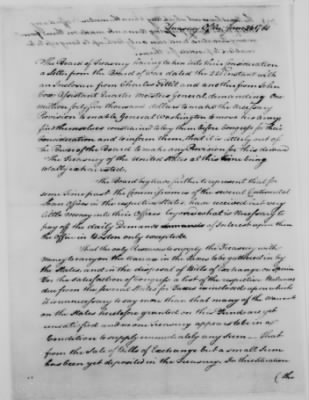 Treasury Office June 24. 1780
The Board of Treasury having taken into their Consideration
a Letter from the Board of War dated the 22 Instant with
an Inclosure from Charles Pettit and another from
Assistant Quarter masters general, demanding One
million fifty five thousand dollars to make the necessary
Provision to enable General Washington to move his Army
find themselves constrained to lay them before Congress for their
Consideration and to inform them that it is utterly out of
the Power of the Board to make any Provision for this demand
The Treasury of the United States at this time being
totally exhausted.
The Board beg leave further to represent that for
some Time past the Commissioners of the several Continental
Loan Offices in the respective States, have received very
little money into their Offices beyond what is Necessary to
pay off the daily Demands of Interest upon them
the Office in Boston only excepted
That the only Resources to supply the Treasury with
money to carry on the War are in the Taxes to be gathered in by
the States, and in the disposal of Bills of Exchange in Specie
For the satisfaction of Congress a list of the respective Ballances
due from the several States for Taxes is inclosed upon which
it is unnecessary to say more than that many of the Warrants
on the States heretofore granted on this Fund are yet
unsatisfied and no one Treasury appears to be in a
Condition to supply immediately any Sum — That
from the Sale of Bills of Exchange but a small Sum
has been yet deposited in the Treasury. In the
(the